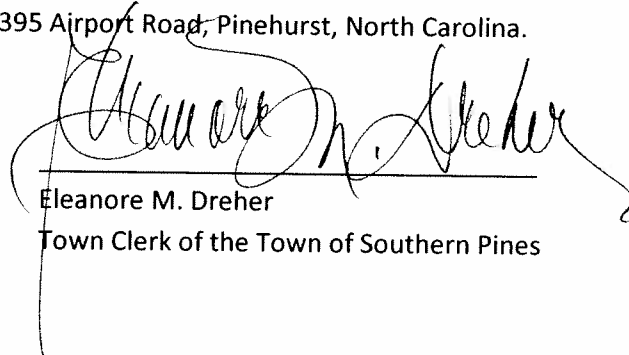 395 Airport Road, Pinehurst, North Carolina.
Eleanore M. Dreher
Eleanore M. Dreher
Town Clerk of the Town of Southern Pines